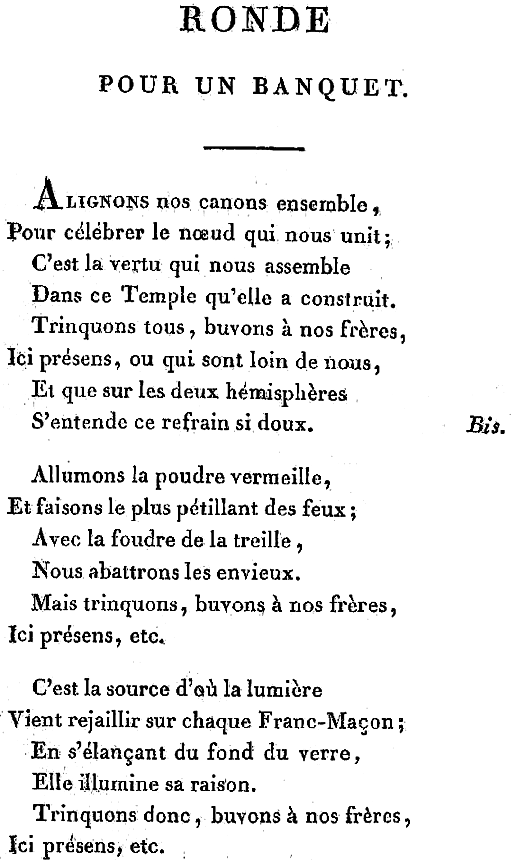 RONDE
POUR UN BANQUET.
ALIGNONS nos canons ensemble,
Pour célébrer le nœud qui nous unit;
C'est la vertu qui nous assemble
Dans ce Temple qu'elle a construit.
Trinquons tous, buvons à nos frères,
Ici présens, ou qui sont loin de nous,
Et que sur les deux hémisphères
S'entende ce refrain si doux. Bis.
Allumons la poudre vermeille,
Et faisons le plus pétillant des feux;
Avec la foudre de la treille,
Nous abattrons les envieux.
Mais trinquons, buvons à nos frères,
Ici présens, etc.
C'est la source d'où la lumière
Vient rejaillir sur chaque Franc-Maçon;
En s'élançant du fond du verre,
Elle illumine sa raison.
Trinquons donc, buvons à nos frères,
Ici présens, etc.